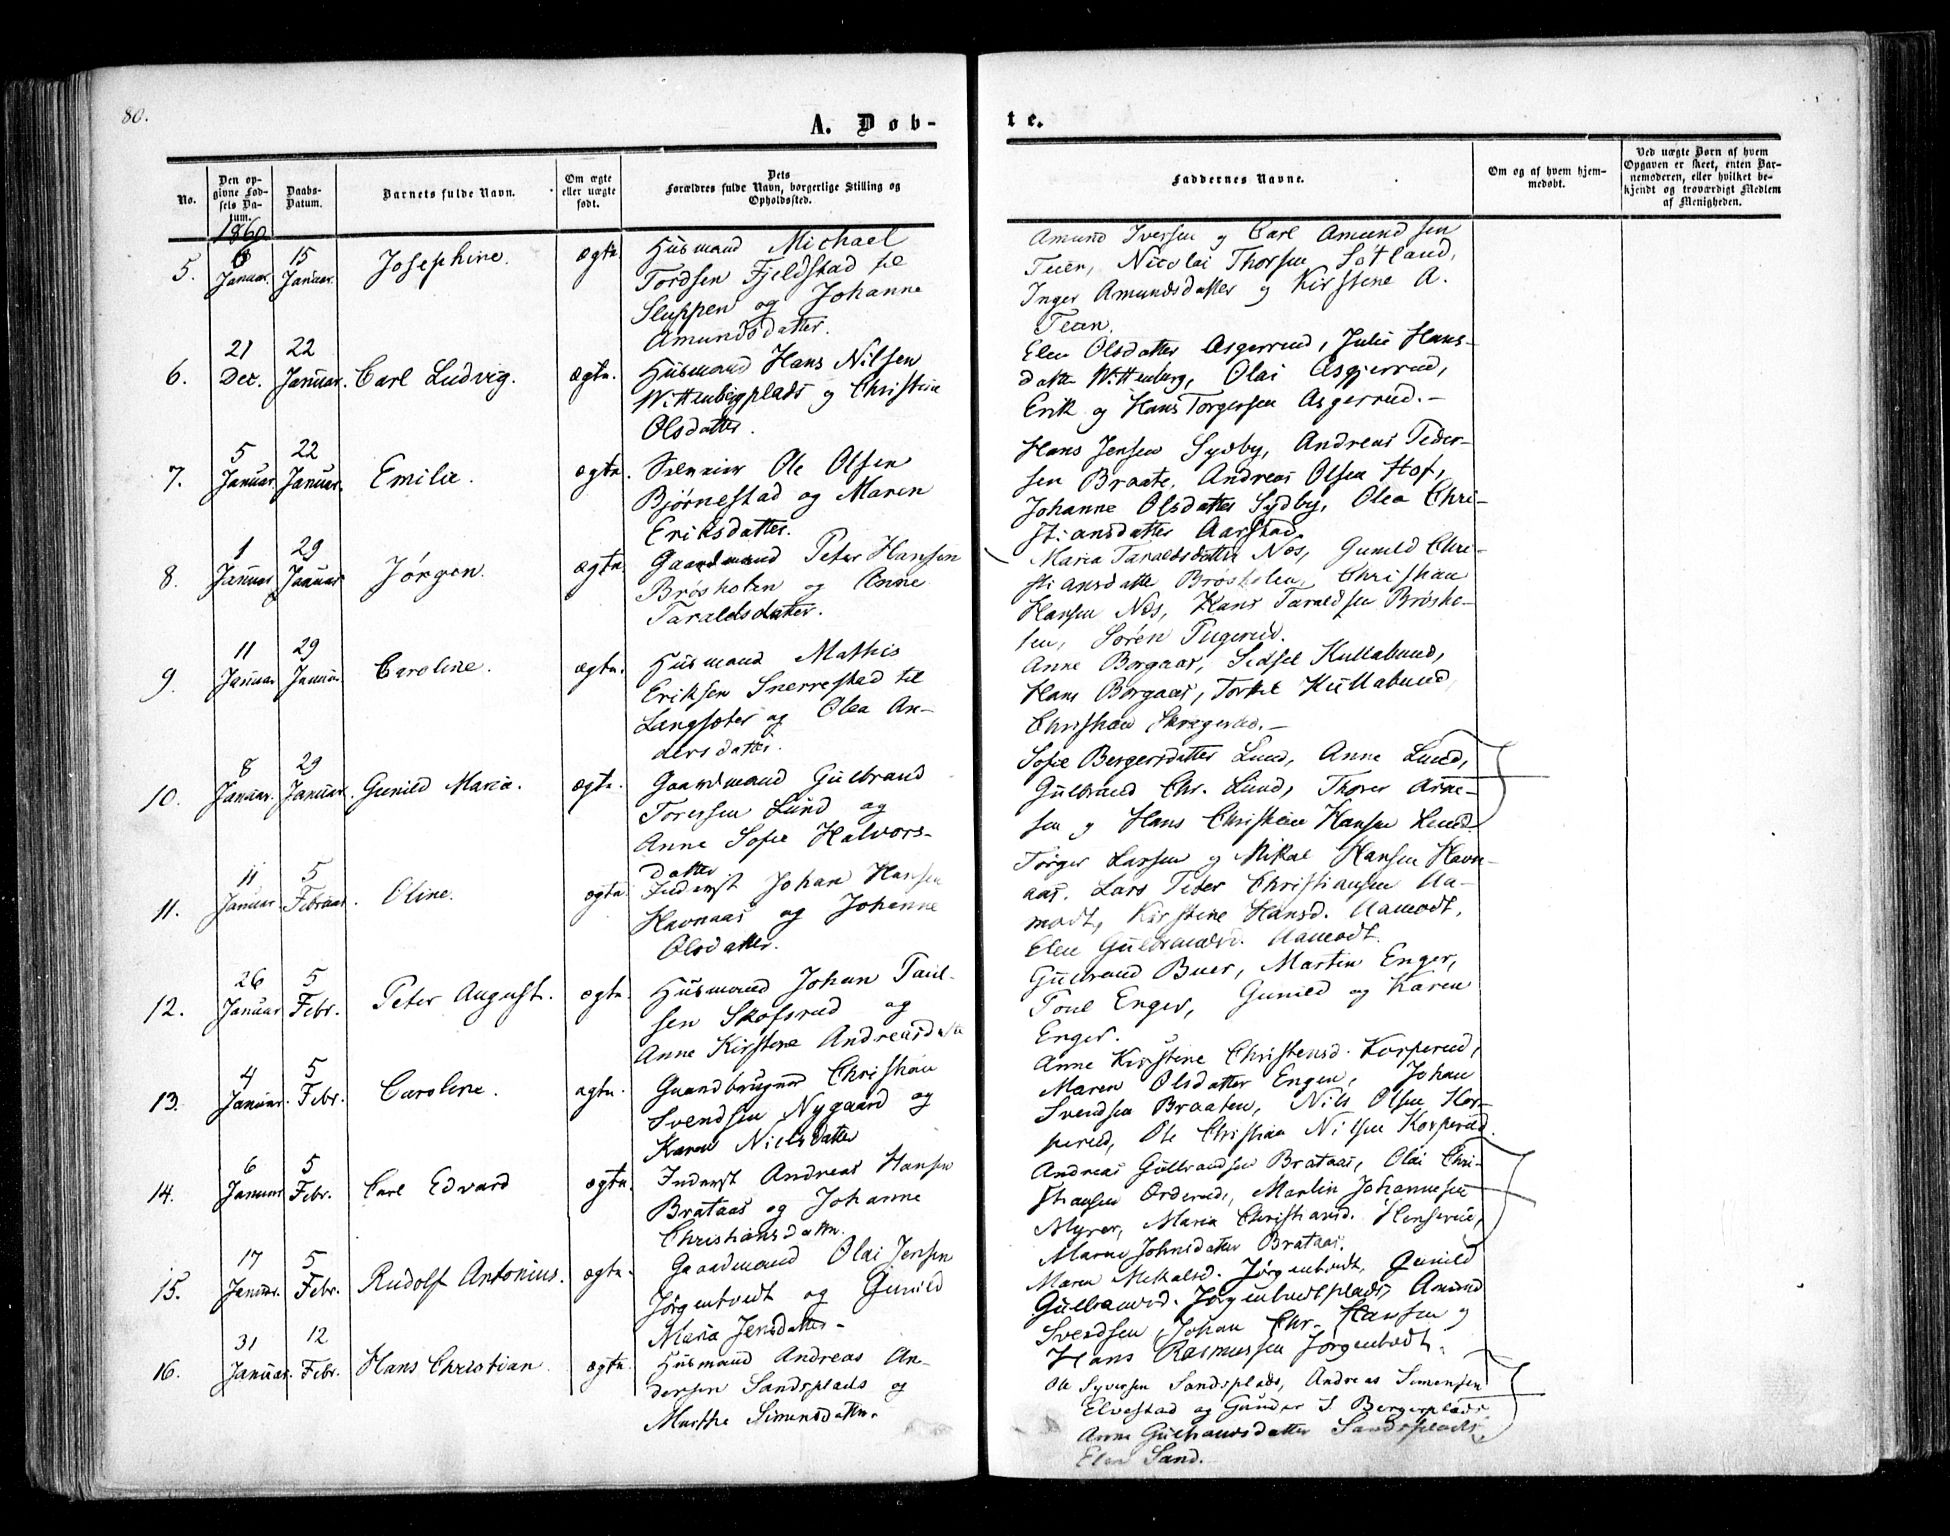 80.
A. Døb-
te.
No.
Den op-
givne Fød-
sels Da-
tum.
Daabs-
Datum.
Barnets fulde Navn.
Om ægte
eller uægte
født.
Dets
Forældres fulde Navn, borgerlige Stilling og
Opholdssted.
Faddernes Navne.
Om og af hvem hjem-
medøbt.
Ved uægte Børn af hvem
Opgaven er skeet, enten Bar-
nemoderen, eller hvilket be-
kjendt og troværdigt Medlem
af Menigheden.
1860
5.
6
Januar.
15
Januar.
Josephine.
ægte.
Husmand Michael
Tordsen Fjeldstad til
Sluppen og Johanne
Amundsdatter.
Amund Iversen og Carl Amundsen
Nicolai Thorsen
Inger Amundsdatter og Kirstine A.
6.
21
Dec.
22
Januar.
Carl Ludvig.
ægte.
Husmand Hans Nilsen
Wittenbergplads og Christine
Olsdatter.
Elen Olsdatter Asgerrud, Julie Hans-
datter Wittenberg, Olai Asgjerrud,
Erik og Hans Torgersen Asgerrud.-
7.
5
Januar
22
Januar.
Emilie.
ægte.
Ole Olsen
Bjørnestad og Maren
Eriksdatter.
Hans Jensen Sydby, Andreas Peder-
sen Braate, Andreas Olsen Hof,
Johanne Olsdatter Sydby, Olea Chri-
stiansdatter Aarstad.
8.
1
Januar
29
Januar
Jørgen.
ægte.
Gaardmand Peter Hansen
Brøsholen og Anne
Taraldsdatter.
Maria Taraldsdatter Næs, Gunild Chri-
stiansdatter Brøsholen, Christian
Hansen Næs, Hans Taraldsen Brøsho-
len, Søren
9.
11
Januar
29
Januar
Caroline.
ægte.
Husmand Mathis
Eriksen Snerrestad til
Langsæter og Olea An-
dersdatter.
Anne Borgaas, Sidsel Kullabund,
Hans Borgaas, Torkel Kullabund,
Christian
10.
8
Januar.
29
Januar.
Gunild Maria.
ægte.
Gaardmand Gulbrand
Toresen Lund og
Anne Sofie Halvors-
datter
Sofie Bergersdatter Lund, Anne Lund,
Gulbrand Chr. Lund, Thorer Arne-
sen og Hans Christian Hansen Lund
11.
11
Januar
5
Februar.
Oline.
ægte
Inderst Johan Hansen
Havnaas og Johanne
Olsdatter.
Torger Larsen og Mikal Hansen Havn-
aas, Lars Peder Christiansen Aa-
modt, Kirstine Hansd. Aamodt,
Elen Gulbrandsd. Aamodt.
12.
26
Januar
5
Febr.
Peter August.
ægte.
Husmand Johan Paul-
sen Skofsrud og
Anne Kirstine Andreasdatter
Gulbrand Buer, Martin Enger,
Poul Enger, Gunild og Karen
Enger.
13.
4
Januar.
5
Febr.
Caroline.
ægte.
Gaardbruger Christian
Svendsen Nygaard og
Karen Nielsdatter
Anne Kirstine Christensd. Korperud,
Maren Olsdatter Engen, Johan
Svendsen Braaten, Nils Olsen Kor-
perud, Ole Christian Nilsen Korperud.
14.
6
Januar
5
Febr.
Carl Edvard
ægte.
Inderst Andreas Hansen
Brataas og Johanne
Christiansdatter.
Andreas Gulbrandsen Brataas, Olai Chri-
stiansen Orderud, Martin Johannesen
Myrer, Maria Christiansd.
Maren Johnsdatter Brataas.
15.
17
Januar.
5
Febr.
Rudolf Antonius.
ægte.
Gaardmand Olai Jensen
Jørgentvedt og Gunild
Maria Jensdatter-
Maren Mikalsd. Jørgentvedt, Gunild
Gulbrandsd. Jørgentvedtplads, Amund
Svendsen, Johan Chr. Hansen og
Hans Rasmussen Jørgentvedt.
16.
31
Januar.
12
Febr.
Hans Christian.
ægte.
Husmand Andreas An-
dersen Sandsplads og
Marthe Simensdatter.
Ole Syversen Sandsplads, Andreas Simensen
Elvestad og Gunder S. Bergersplads
Anne Gulbrandsdatter Sandsplads
Elen Sand.-